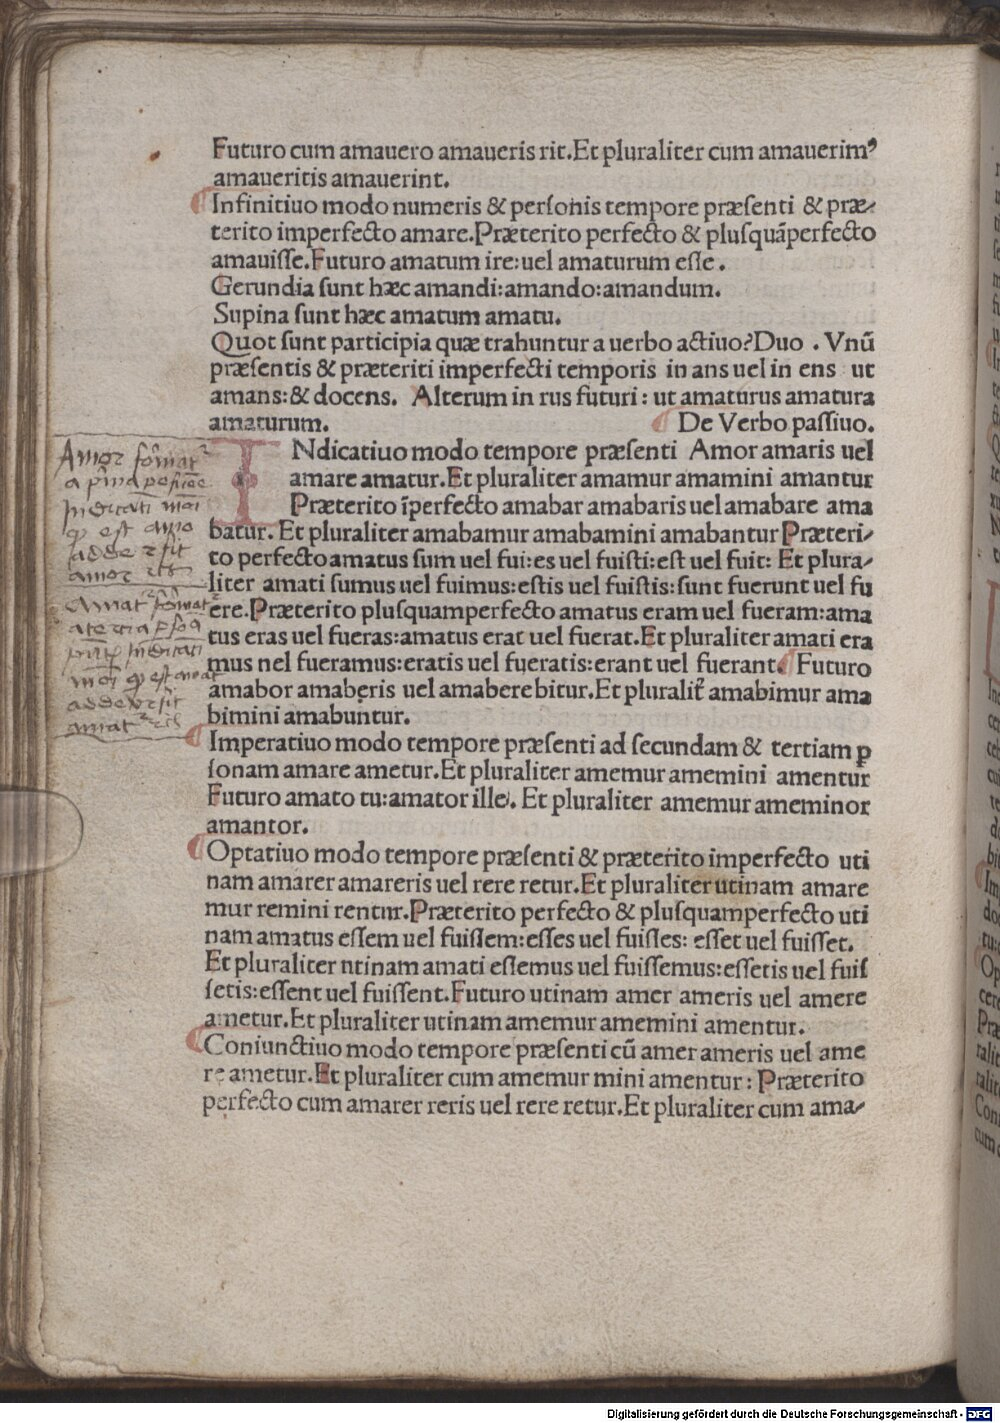 Futuro cum amauero amaueris rit.Et pluraliter cum amauerimꝰ
amaueritis amauerint.
Infinitiuo modo numeris & perſonis tempore præſenti & præ-
terito imperfecto amare.Præterito perfecto & pluſquãperfecto
amauiſſe.Futuro amatum ire:uel amaturum eſſe.
Gerundia ſunt hæc amandi:amando:amandum.
Supina ſunt hæc amatum amatu.
Quot ſunt participia quæ trahuntur a uerbo actiuo?Duo . Vnũ
præſentis & præteriti imperfecti temporis in ans uel in ens ut
amans:& docens. Alterum in rus futuri : ut amaturus amatura
amaturum. De Verbo paſſiuo.
INdicatiuo modo tempore præſenti Amor amaris uel
amare amatur.Et pluraliter amamur amamini amantur
Præterito ĩperfecto amabar amabaris uel amabare ama
batur. Et pluraliter amabamur amabamini amabantur Præteri-
to perfecto amatus ſum uel fui:es uel fuiſti:eſt uel fuit: Et plura-
liter amati ſumus uel fuimus:eſtis uel fuiſtis:ſunt fuerunt uel fu
ere.Præterito pluſquamperfecto amatus eram uel fueram:ama
tus eras uel fueras:amatus erat uel fuerat.Et pluraliter amati era
mus nel fueramus:eratis uel fueratis:erant uel fuerant. Futuro
amabor amaberis uel amabere bitur.Et pluralit̃ amabimur ama
bimini amabuntur.
Imperatiuo modo tempore præſenti ad ſecundam & tertiam ꝑ
ſonam amare ametur.Et pluraliter amemur amemini amentur
Futuro amato tu:amator ille. Et pluraliter amemur ameminor
amantor.
Optatiuo modo tempore præſenti & præterito imperfecto uti
nam amarer amareris uel rere retur.Et pluraliter utinam amare
mur remini rentur.Præterito perfecto & pluſquamperfecto uti
nam amatus eſſem uel fuiſſem:eſſes uel fuiſſes: eſſet uel fuiſſet.
Et pluraliter ntinam amati eſſemus uel fuiſſemus:eſſetis uel fuiſ
ſetis:eſſent uel fuiſſent.Futuro utinam amer ameris uel amere
ametur.Et pluraliter utinam amemur amemini amentur.
Coniunctiuo modo tempore præſenti cũ amer ameris uel ame
re ametur.Et pluraliter cum amemur mini amentur : Præterito
perfecto cum amarer reris uel rere retur.Et pluraliter cum ama-
Amor
a
indicati
est amo
adde r fit
amor
indicati
adde
Digitalisierung gefördert durch die Deutsche Forschungsgemeinschaft - DFG